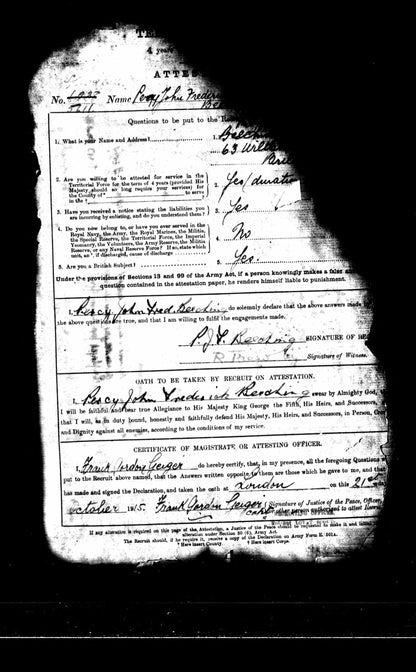 4 years
ATTES
No. Name Percy John Frederi
Questions to be put to the Re
1. What is your Name and Address? 1. Beeching
63
2. Are you willing to be attested for service in the
Territorial Force for the term of 4 years (provided His
Majesty should so long require your services) for
the County of * to serve
in the † 2. Yes/duratio
3. Have you received a notice stating the liabilities you
are incurring by enlisting, and do you understand them? 3. Yes
4. Do you now belong to, or have you ever served in the
Royal Navy, the Army, the Royal Marines, the Militia,
the Special Reserve, the Territorial Force, the Imperial
Yeomanry, the Volunteers, the Army Reserve, the Militia
Reserve, or any Naval Reserve Force? If so, state which
unit, and, if discharged, cause of discharge 4. No
5. Are you a British Subject? 5. Yes.
Under the provisions of Sections 13 and 99 of the Army Act, if a person knowingly makes a false
question contained in the attestation paper, he renders himself liable to punishment.
I, Percy John Fred. Beeching do solemnly declare that the above answers made
the above questions are true, and that I am willing to fulfil the engagements made.
P. J. F. Beeching SIGNATURE OF
Signature of Witness.
OATH TO BE TAKEN BY RECRUIT ON ATTESTATION.
I, Percy John Frederick Beeching swear by Almighty God,
I will be faithful and bear true Allegiance to His Majesty King George the Fifth, His Heirs, and Successors,
that I will, as in duty bound, honestly and faithfully defend His Majesty, His Heirs, and Successors, in Person, Cro
and Dignity against all enemies, according to the conditions of my service.
CERTIFICATE OF MAGISTRATE OR ATTESTING OFFICER.
I, Frank Gordon Geiger do hereby certify, that, in my presence, all the foregoing Questions
put to the Recruit above named, that the Answers written opposite to them are those which he gave to me, and that
has made and signed the Declaration, and taken the oath at London on this 21st
October 1915. Frank Gordon Geiger Signature of Justice of the Peace, Officer,
Capt. other person authorised to attest Recruits
If any alteration is required on this page of the Attestation, a Justice of the Peace should be requested to make it and initial
alteration under Section 80 (6), Army Act.
The Recruit should, if he require it, receive a copy of the Declaration on Army Form E. 501A.
* Here insert County. † Here insert Corps.